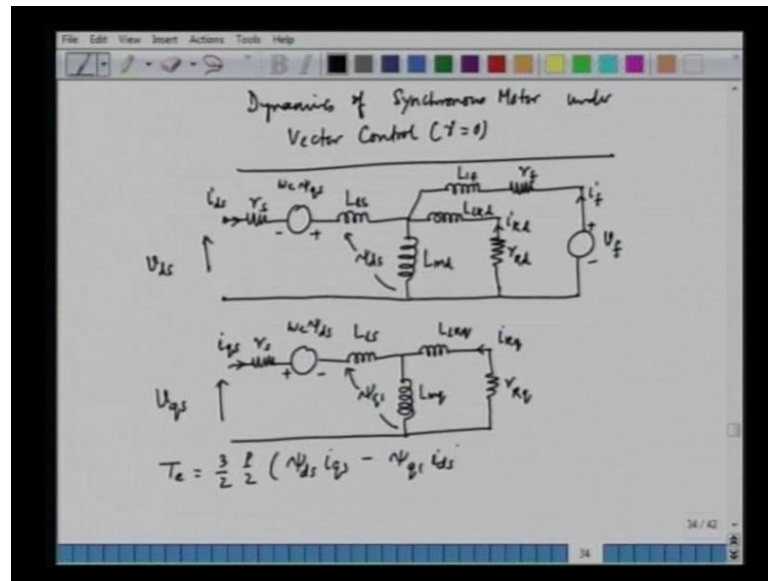 File Edit View Insert Actions Tools Help
Dynamics of Synchronous Motor under
Vector Control (γ=0)
L_lf r_f i_f
i_ds r_s ω_c ψ_qs L_ls L_lkd i_kd
- +
v_ds ψ_ds L_md r_kd + v_f -
i_qs r_s ω_c ψ_ds L_ls L_lkq i_kq
+ -
v_qs ψ_qs L_mq r_kq
T_e = 3/2 P/2 (ψ_ds i_qs - ψ_qs i_ds
34 / 42
34